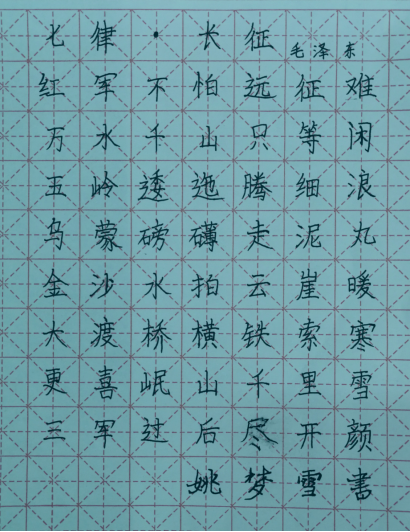 七律·长征
毛泽东
红军不怕远征难
万水千山只等闲
五岭逶迤腾细浪
乌蒙磅礴走泥丸
金沙水拍云崖暖
大渡桥横铁索寒
更喜岷山千里雪
三军过后尽开颜
姚梦雪书